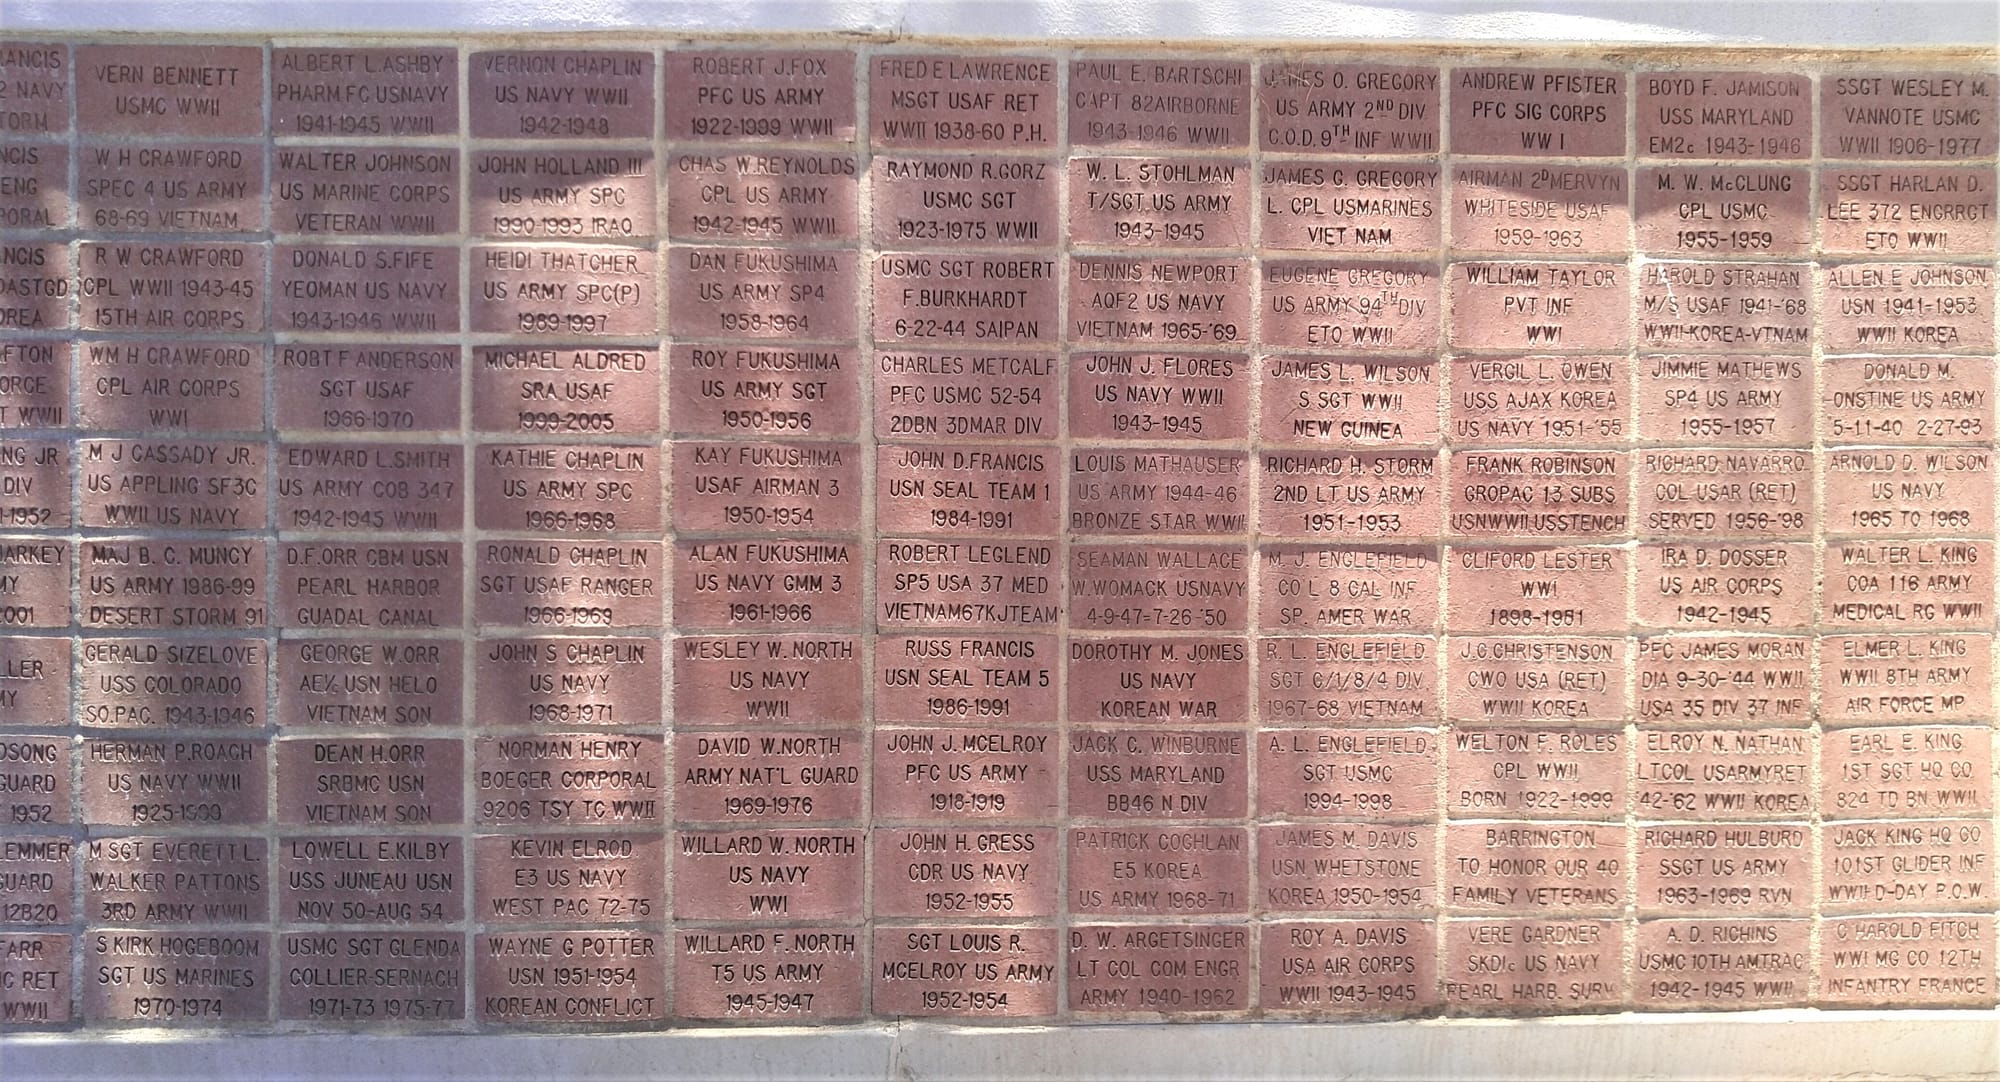 ANCIS
2 NAVY
TORM
VERN BENNETT
USMC WWII
ALBERT L.ASHBY
PHARM FC USNAVY
1941-1945 WWII
VERNON CHAPLIN
US NAVY WWII
1942-1948
ROBERT J.FOX
PFC US ARMY
1922-1999 WWII
FRED E LAWRENCE
MSGT USAF RET
WWII 1938-60 P.H.
PAUL E. BARTSCHI
CAPT 82AIRBORNE
1943-1946 WWII
JAMES O. GREGORY
US ARMY 2ND DIV
C.O.D. 9TH INF WWII
ANDREW PFISTER
PFC SIG CORPS
WW I
BOYD F. JAMISON
USS MARYLAND
EM2c 1943-1946
SSGT WESLEY M.
VANNOTE USMC
WWII 1906-1977
NCIS
ENG
PORAL
W H CRAWFORD
SPEC 4 US ARMY
68-69 VIETNAM
WALTER JOHNSON
US MARINE CORPS
VETERAN WWII
JOHN HOLLAND III
US ARMY SPC
1990-1993 IRAQ
CHAS W.REYNOLDS
CPL US ARMY
1942-1945 WWII
RAYMOND R.GORZ
USMC SGT
1923-1975 WWII
W. L. STOHLMAN
T/SGT US ARMY
1943-1945
JAMES G. GREGORY
L. CPL USMARINES
VIET NAM
AIRMAN 2DMERVYN
WHITESIDE USAF
1959-1963
M. W. McCLUNG
CPL USMC
1955-1959
SSGT HARLAN D.
LEE 372 ENGRRGT
ETO WWII
NCIS
OASTGD
OREA
R W CRAWFORD
CPL WWII 1943-45
15TH AIR CORPS
DONALD S.FIFE
YEOMAN US NAVY
1943-1946 WWII
HEIDI THATCHER
US ARMY SPC(P)
1989-1997
DAN FUKUSHIMA
US ARMY SP4
1958-1964
USMC SGT ROBERT
F.BURKHARDT
6-22-44 SAIPAN
DENNIS NEWPORT
AQF2 US NAVY
VIETNAM 1965-'69
EUGENE GREGORY
US ARMY 94TH DIV
ETO WWII
WILLIAM TAYLOR
PVT INF
WWI
HAROLD STRAHAN
M/S USAF 1941-'68
WWII-KOREA-VTNAM
ALLEN E JOHNSON
USN 1941-1953
WWII KOREA
AFTON
ORCE
T WWII
WM H CRAWFORD
CPL AIR CORPS
WWI
ROBT F ANDERSON
SGT USAF
1966-1970
MICHAEL ALDRED
SRA USAF
1999-2005
ROY FUKUSHIMA
US ARMY SGT
1950-1956
CHARLES METCALF
PFC USMC 52-54
2DBN 3DMAR DIV
JOHN J. FLORES
US NAVY WWII
1943-1945
JAMES L. WILSON
S SGT WWII
NEW GUINEA
VERGIL L. OWEN
USS AJAX KOREA
US NAVY 1951-'55
JIMMIE MATHEWS
SP4 US ARMY
1955-1957
DONALD M.
ONSTINE US ARMY
5-11-40 2-27-93
NG JR
DIV
1-1952
M J CASSADY JR.
US APPLING SF3C
WWII US NAVY
EDWARD L.SMITH
US ARMY COB 347
1942-1945 WWII
KATHIE CHAPLIN
US ARMY SPC
1966-1968
KAY FUKUSHIMA
USAF AIRMAN 3
1950-1954
JOHN D.FRANCIS
USN SEAL TEAM 1
1984-1991
LOUIS MATHAUSER
US ARMY 1944-46
BRONZE STAR WWII
RICHARD H. STORM
2ND LT US ARMY
1951-1953
FRANK ROBINSON
GROPAC 13 SUBS
USNWWII.USSTENCH
RICHARD NAVARRO
COL USAR (RET)
SERVED 1956-'98
ARNOLD D. WILSON
US NAVY
1965 TO 1968
ARKEY
MY
2001
MAJ B. C. MUNCY
US ARMY 1986-99
DESERT STORM 91
D.F.ORR CBM USN
PEARL HARBOR
GUADAL CANAL
RONALD CHAPLIN
SGT USAF RANGER
1966-1969
ALAN FUKUSHIMA
US NAVY GMM 3
1961-1966
ROBERT LEGLEND
SP5 USA 37 MED
VIETNAM67KJTEAM
SEAMAN WALLACE
W.WOMACK USNAVY
4-9-47=7-26-'50
M. J. ENGLEFIELD
CO L 8 CAL INF.
SP. AMER WAR
CLIFORD LESTER
WWI
1898-1981
IRA D. DOSSER
US AIR CORPS
1942-1945
WALTER L. KING
COA 116 ARMY
MEDICAL RG WWII
LLER
MY
GERALD SIZELOVE
USS COLORADO
SO.PAC. 1943-1946
GEORGE W.ORR
USN HELO
VIETNAM SON
JOHN S CHAPLIN
US NAVY
1968-1971
WESLEY W. NORTH
US NAVY
WWII
RUSS FRANCIS
USN SEAL TEAM 5
1986-1991
DOROTHY M. JONES
US NAVY
KOREAN WAR
R. L. ENGLEFIELD
SGT C/1/8/4 DIV.
1967-68 VIETNAM
J.G.CHRISTENSON
CWO USA (RET)
WWII KOREA
PFC JAMES MORAN
DIA 9-30-'44 WWII
USA 35 DIV 37 INF
ELMER L. KING
WWII 8TH ARMY
AIR FORCE MP
OSONG
GUARD
1952
HERMAN P.ROACH
US NAVY WWII
1925-1999
DEAN H.ORR
SRBMC USN
VIETNAM SON
NORMAN HENRY
BOEGER CORPORAL
9206 TSY TC WWII
DAVID W.NORTH
ARMY NAT'L GUARD
1969-1976
JOHN J. MCELROY
PFC US ARMY
1918-1919
JACK C. WINBURNE
USS MARYLAND
BB46 N DIV
A. L. ENGLEFIELD
SGT USMC
1994-1998
WELTON F. ROLES
CPL WWII
BORN 1922-1999
ELROY N. NATHAN
LTCOL USARMYRET
'42-'62 WWII KOREA
EARL E. KING
1ST SGT HQ CO
824 TD BN WWII
LEMMER
GUARD
12B20
M SGT EVERETT L.
WALKER PATTONS
3RD ARMY WWII
LOWELL E.KILBY
USS JUNEAU USN
NOV 50-AUG 54
KEVIN ELROD
E3 US NAVY
WEST PAC 72-75
WILLARD W. NORTH
US NAVY
WWI
JOHN H. GRESS
CDR US NAVY
1952-1955
PATRICK COGHLAN
E5 KOREA
US ARMY 1968-71
JAMES M. DAVIS
USN WHETSTONE
KOREA 1950-1954
BARRINGTON
TO HONOR OUR 40
FAMILY VETERANS
RICHARD HULBURD
SSGT US ARMY
1963-1969 RVN
JACK KING HQ CO
101ST GLIDER INF
WWII D-DAY P.O.W.
FARR
C RET
WWII
S KIRK HOGEBOOM
SGT US MARINES
1970-1974
USMC SGT GLENDA
COLLIER-SERNACH
1971-73 1975-77
WAYNE G POTTER
USN 1951-1954
KOREAN CONFLICT
WILLARD F. NORTH
T5 US ARMY
1945-1947
SGT LOUIS R.
MCELROY US ARMY
1952-1954
D. W. ARGETSINGER
LT COL COM ENGR
ARMY 1940-1962
ROY A. DAVIS
USA AIR CORPS
WWII 1943-1945
VERE GARDNER
SKD1c US NAVY
PEARL HARB. SURV
A. D. RICHINS
USMC 10TH AMTRAC
1942-1945 WWII
C HAROLD FITCH
WWI MG CO 12TH
INFANTRY FRANCE